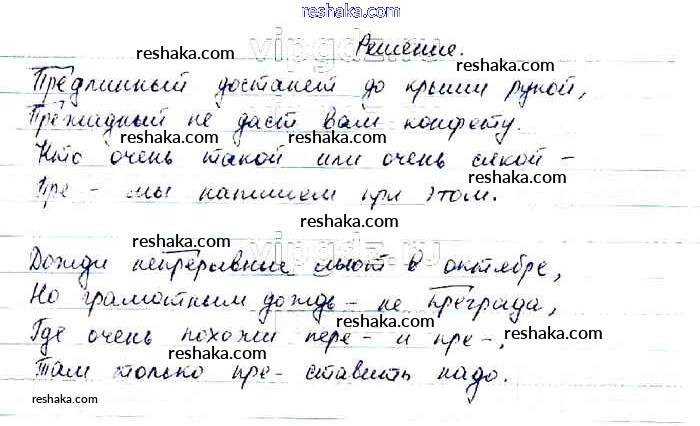 reshaka.com
vipgdz.ru
Решение.
reshaka.com
Предлинный достанет до крыши рукой,
reshaka.com reshaka.com
Прежадный не даст вам конфету.
reshaka.com reshaka.com
Кто очень такой или очень сякой –
reshaka.com
Пре – мы напишем при этом.
reshaka.com
vipgdz.ru
reshaka.com
Дожди непрерывные льют в октябре,
reshaka.com reshaka.com
Но грамотным дождь – не преграда,
reshaka.com
Где очень похожи пере- и пре-,
reshaka.com reshaka.com
Там только пре- ставить надо.
reshaka.com reshaka.com